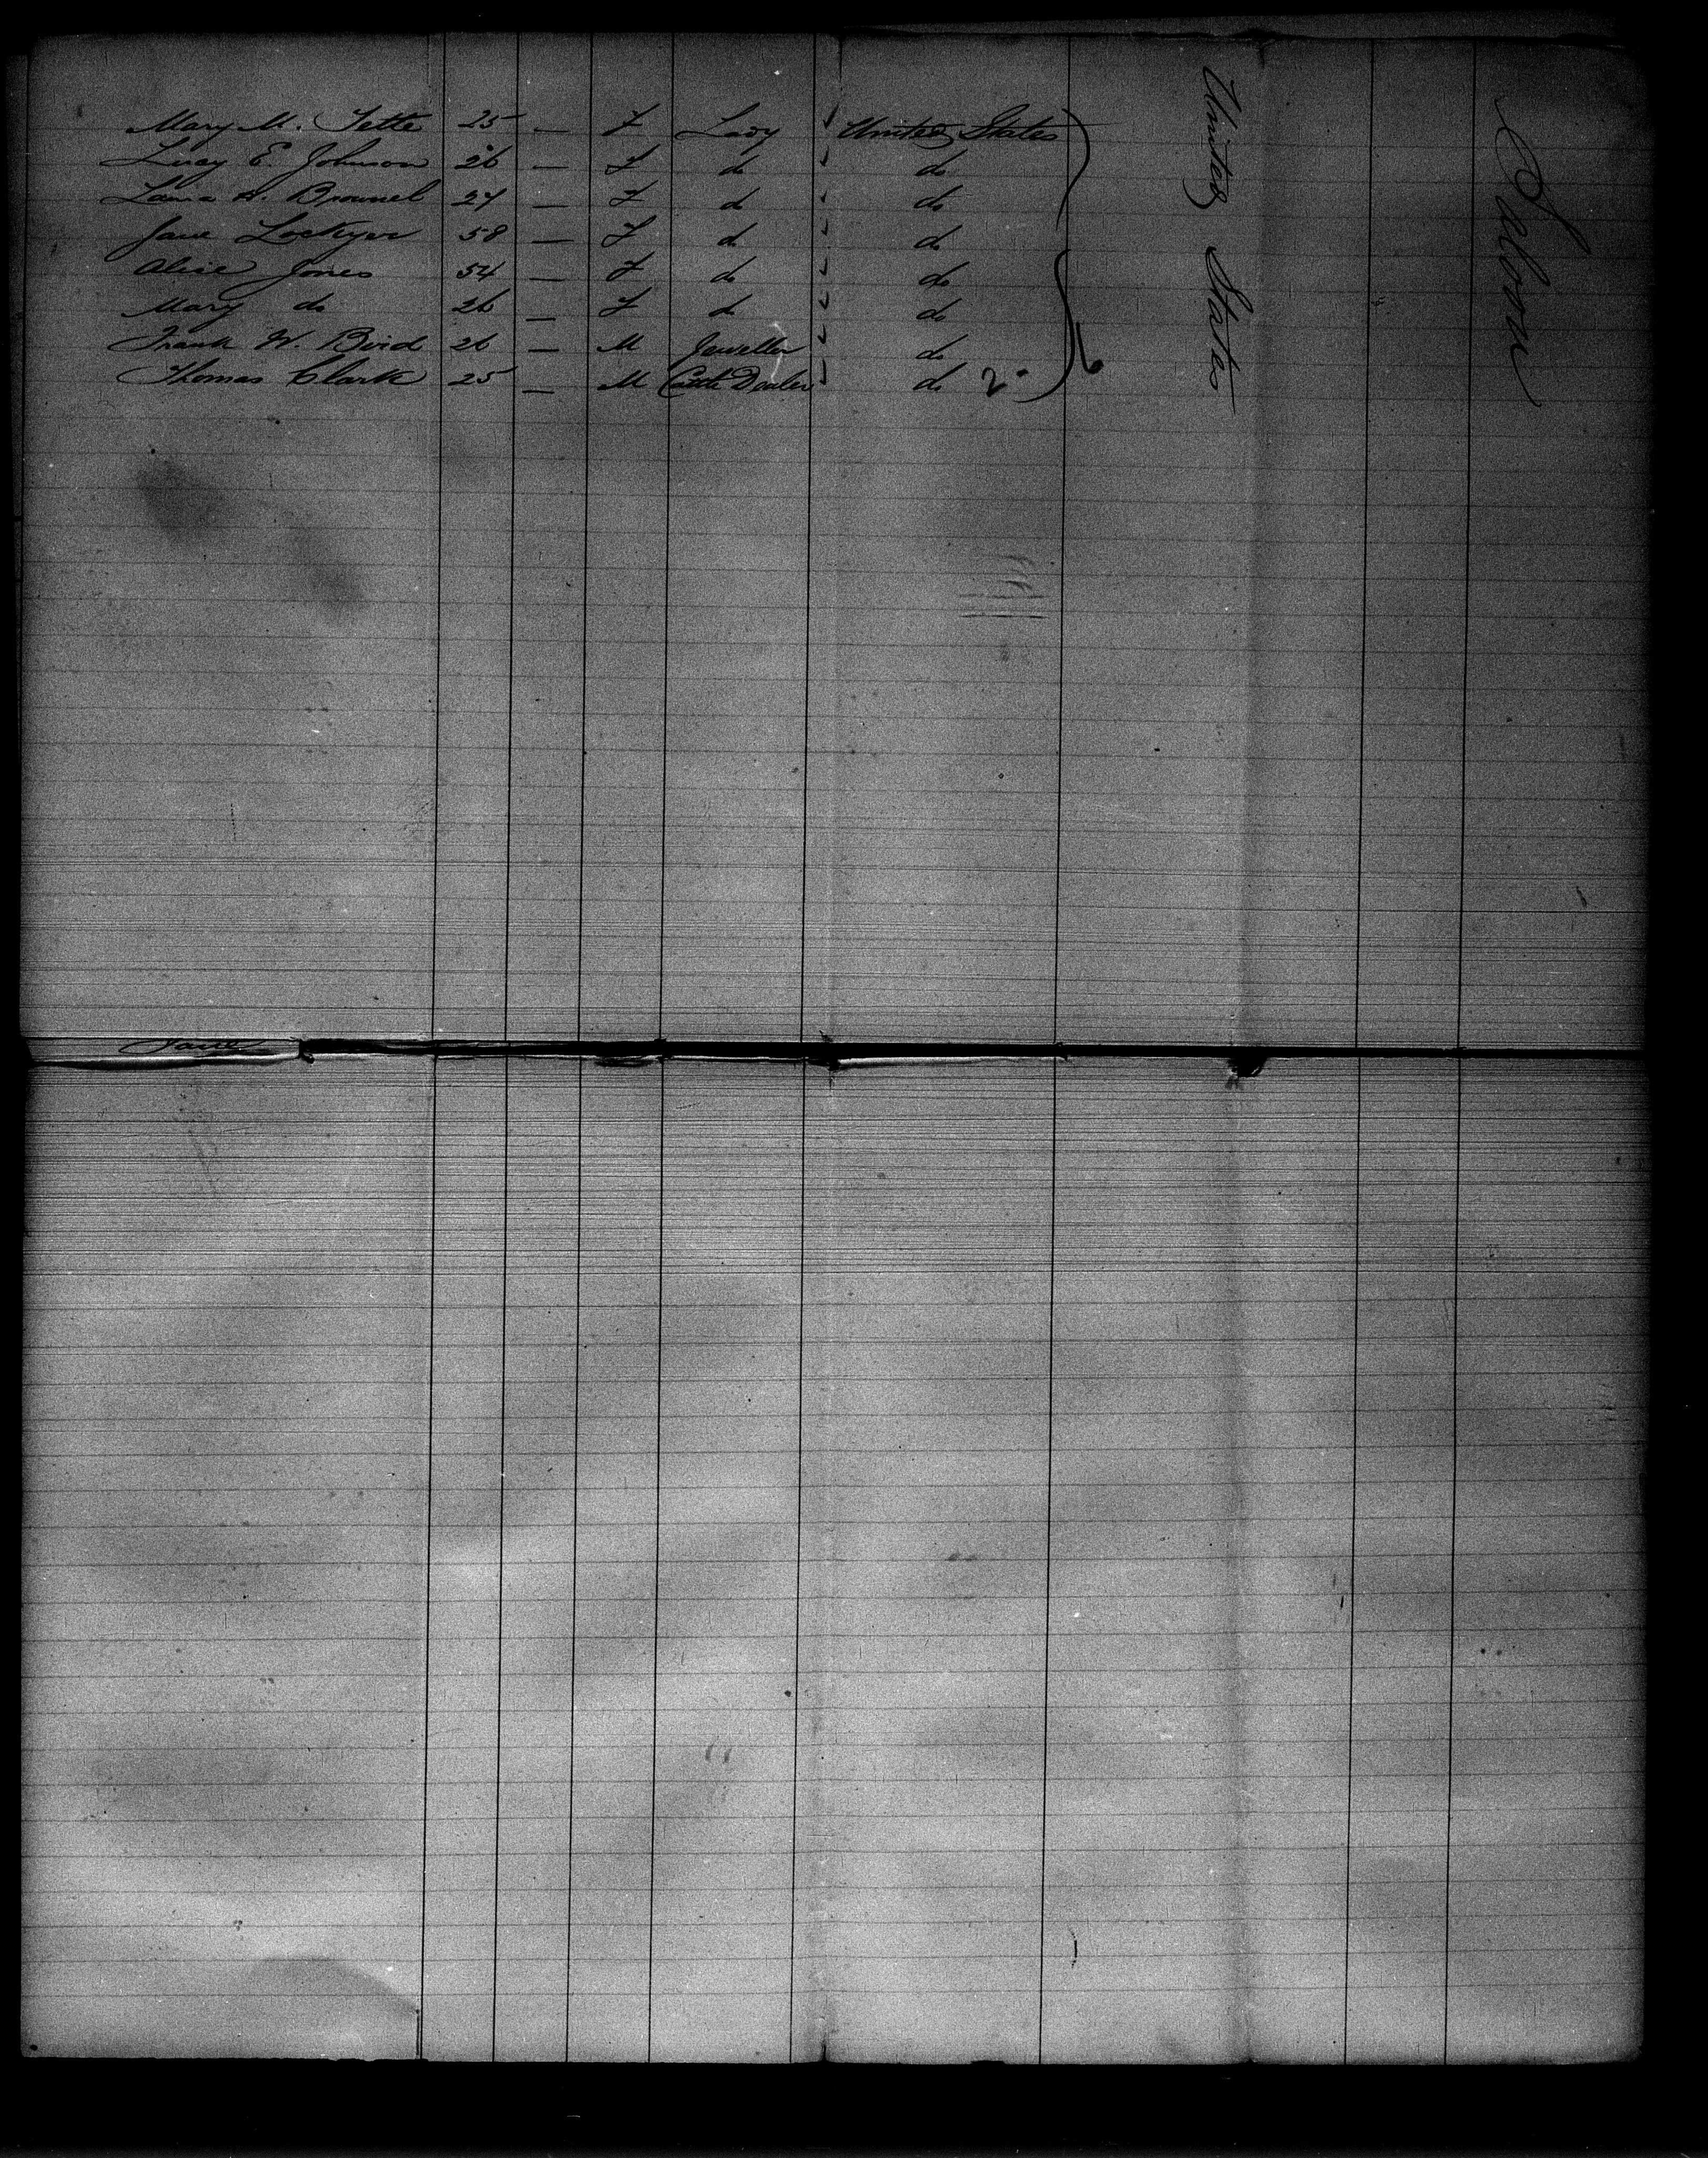 Mary M. Tette 25 — F Lady United States
Lucy E. Johnson 26 — F do do
Laura A. Brownel 24 — F do do
Jane Lockyer 58 — F do do
Alice Jones 54 — F do do
Mary do 26 — F do do
Frank W. Bird 26 — M Jeweller do
Thomas Clark 25 — M Cattle Dealer do 2.
United States
Saloon